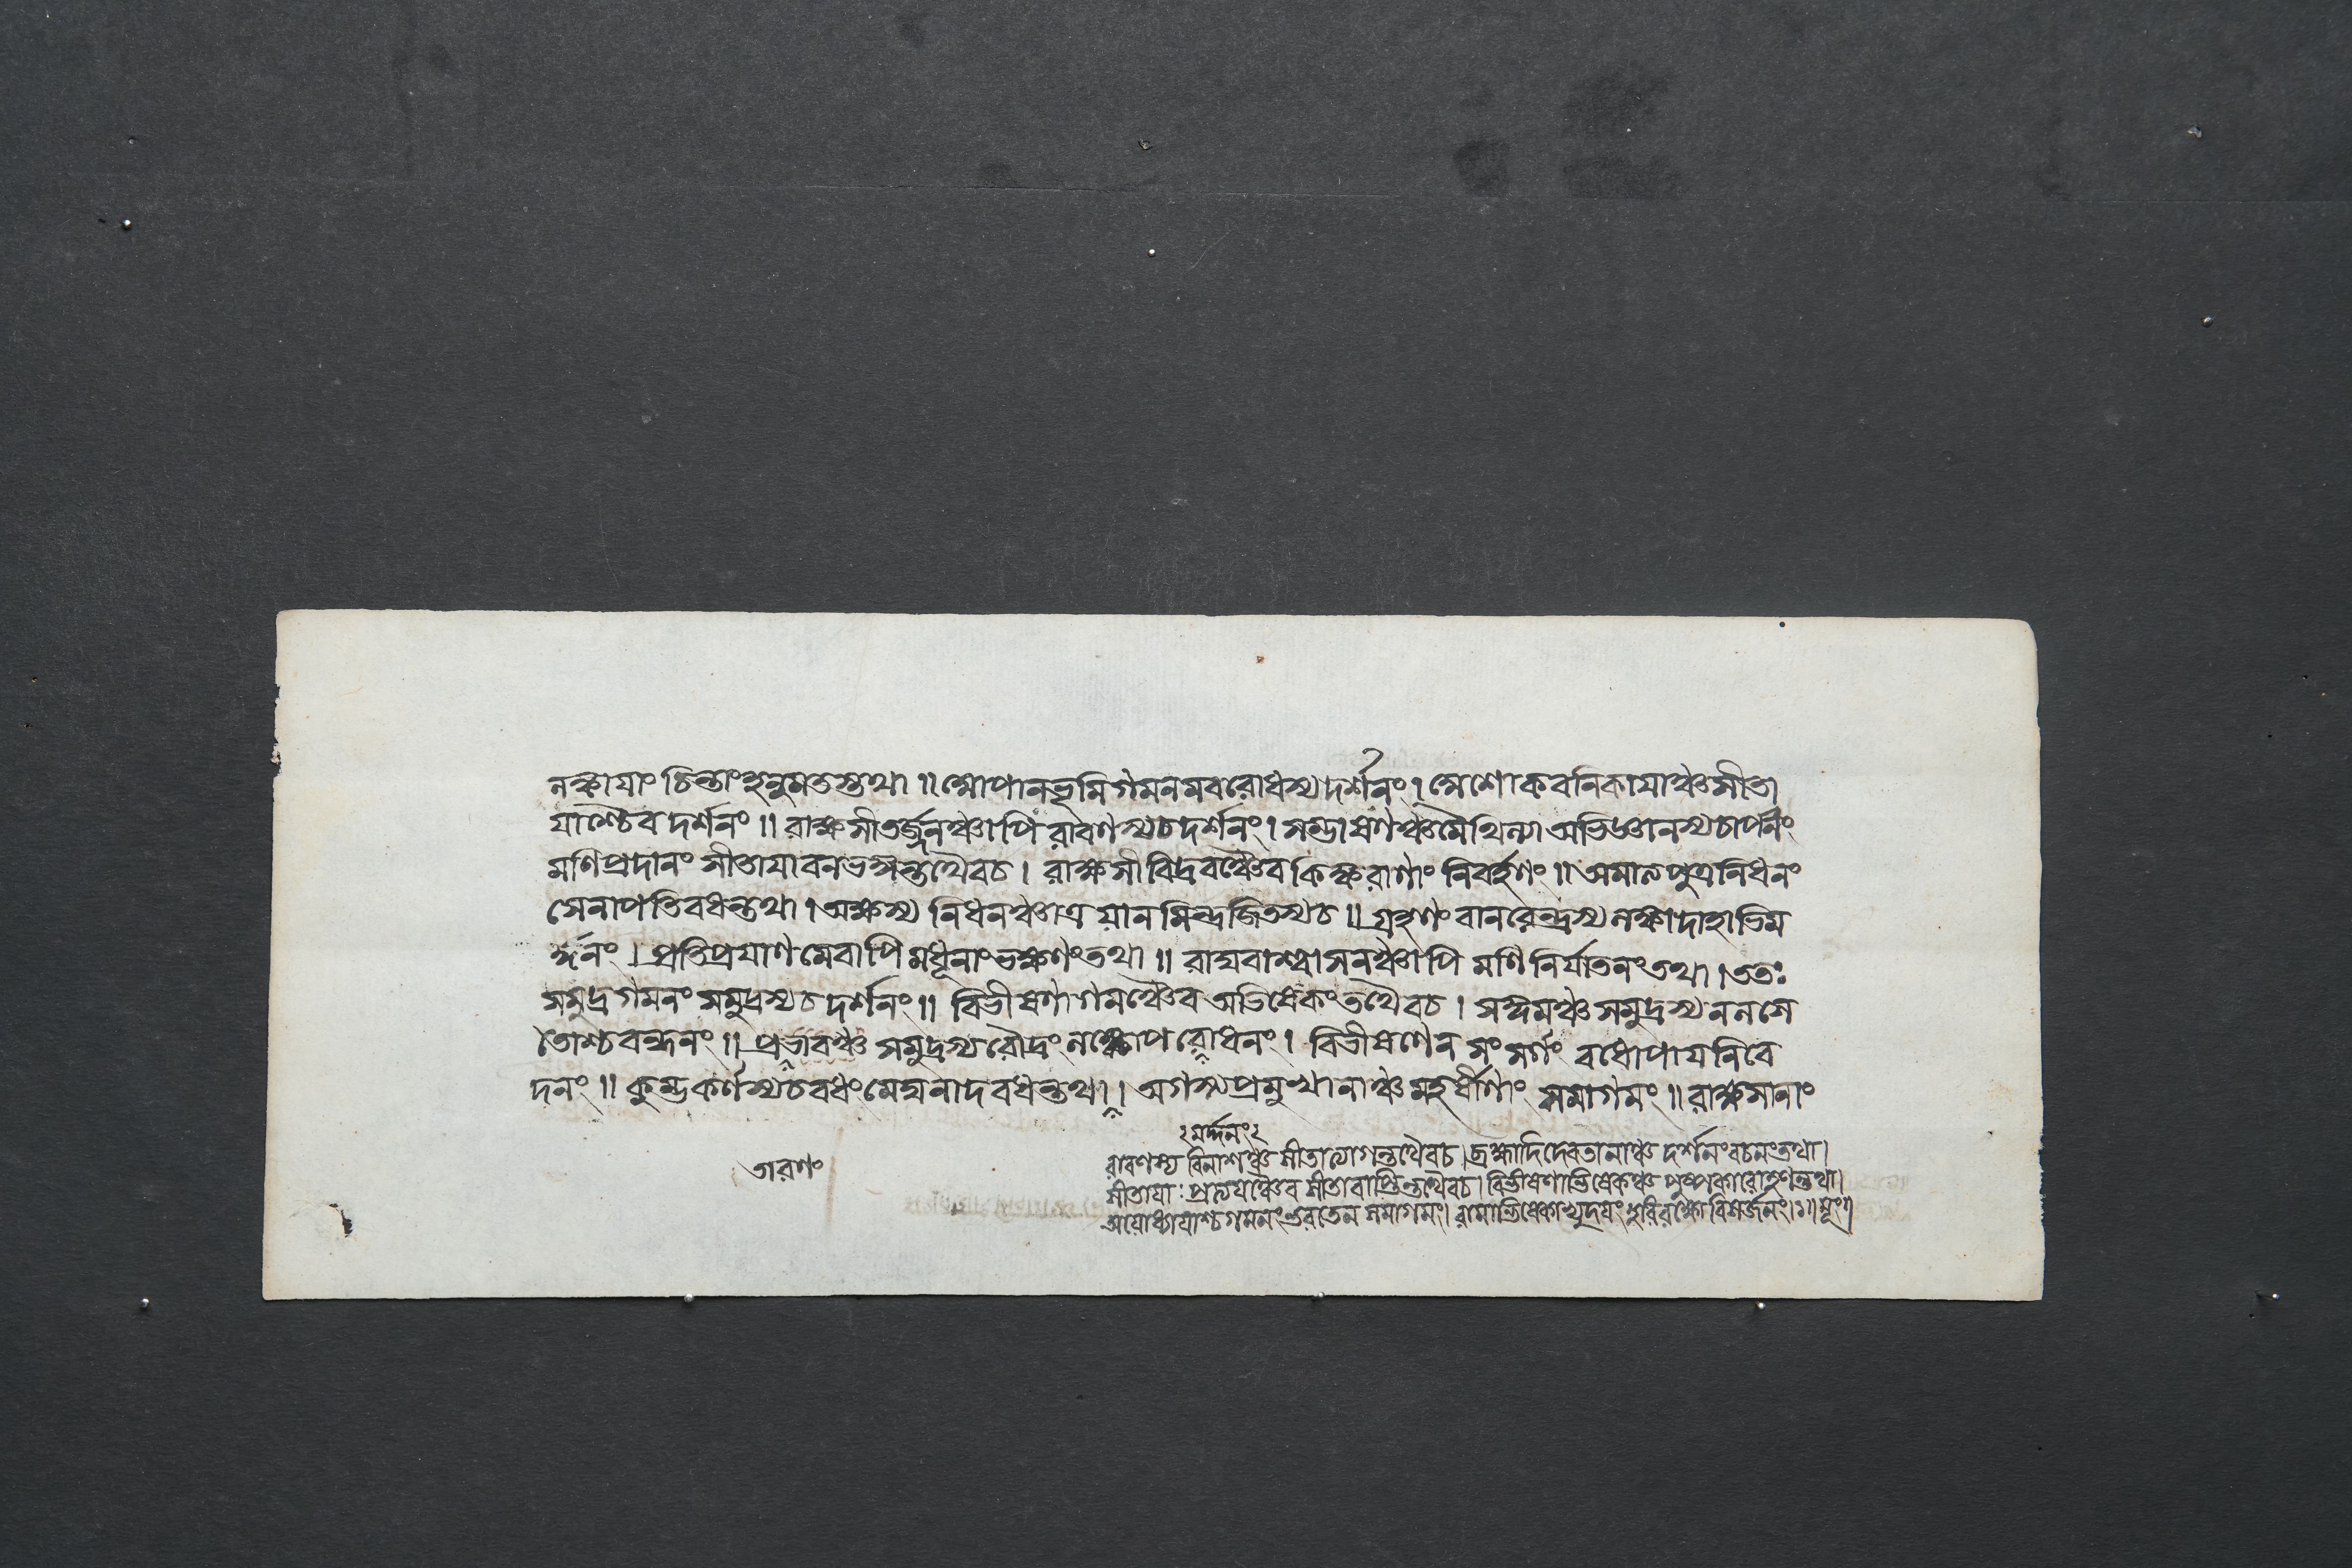 লঙ্কাযাং চিন্তাং হনুমতস্তথা ॥ আপানভূমিগমনমবরোধস্য দর্শনং। অশোকবনিকাযাঞ্চ সীতা
যাশ্চৈব দর্শনং ॥ রাক্ষসীতর্জ্জনঞ্চাপি রাবণস্য চ দর্শনং। সম্ভাষণঞ্চ মৈথিল্যা অভিজ্ঞানস্য চার্পনং
মণিপ্রদানং সীতাযা বনভঙ্গন্তথৈব চ। রাক্ষসীবিদ্রবঞ্চৈব কিঙ্করাণাং নিবর্হণং ॥ অমাত্যপুত্রনিধনং
সেনাপতিবধন্তথা। অক্ষস্য নিধনঞ্চাত্র যানমিন্দ্রজিতস্য চ ॥ গ্রহণং বানরেন্দ্রস্য লঙ্কাদাহাভিম
র্দ্দনং। প্রতিপ্রযাণমেবাপি মধূনাং ভক্ষণং তথা ॥ রাঘবাশ্বাসনঞ্চাপি মণিনির্যাতনং তথা। ততঃ
সমুদ্রগমনং সমুদ্রস্য চ দর্শনং ॥ বিভীষণাগমঞ্চৈব অভিষেকং তথৈব চ। সঙ্গমঞ্চ সমুদ্রস্য নলসে
তোশ্চ বন্ধনং ॥ প্রভাবঞ্চ সমুদ্রস্য রৌদ্রং লঙ্কোপরোধনং। বিভীষণেন সংসর্গং বধোপাযনিবে
দনং ॥ কুম্ভকর্ণস্য চ বধং মেঘনাদবধন্তথা। অগস্ত্যপ্রমুখানাঞ্চ মহর্ষীণাং সমাগমং ॥ রাক্ষসানাং
২মর্দ্দনং২
তারণং
রাবণস্য বিনাশঞ্চ সীতাত্যাগন্তথৈব চ। ব্রহ্মাদিদেবতানাঞ্চ দর্শনং বচনং তথা।
সীতাযাঃ প্রত্যযঞ্চৈব সীতাবাপ্তিন্তথৈব চ। বিভীষণাভিষেকঞ্চ পুষ্পকারোহণন্তথা।
অযোধ্যাযাশ্চ গমনং ভরতেন সমাগমং। রামাভিষেকাভ্যুদযং হরিরক্ষোবিসর্জনং।